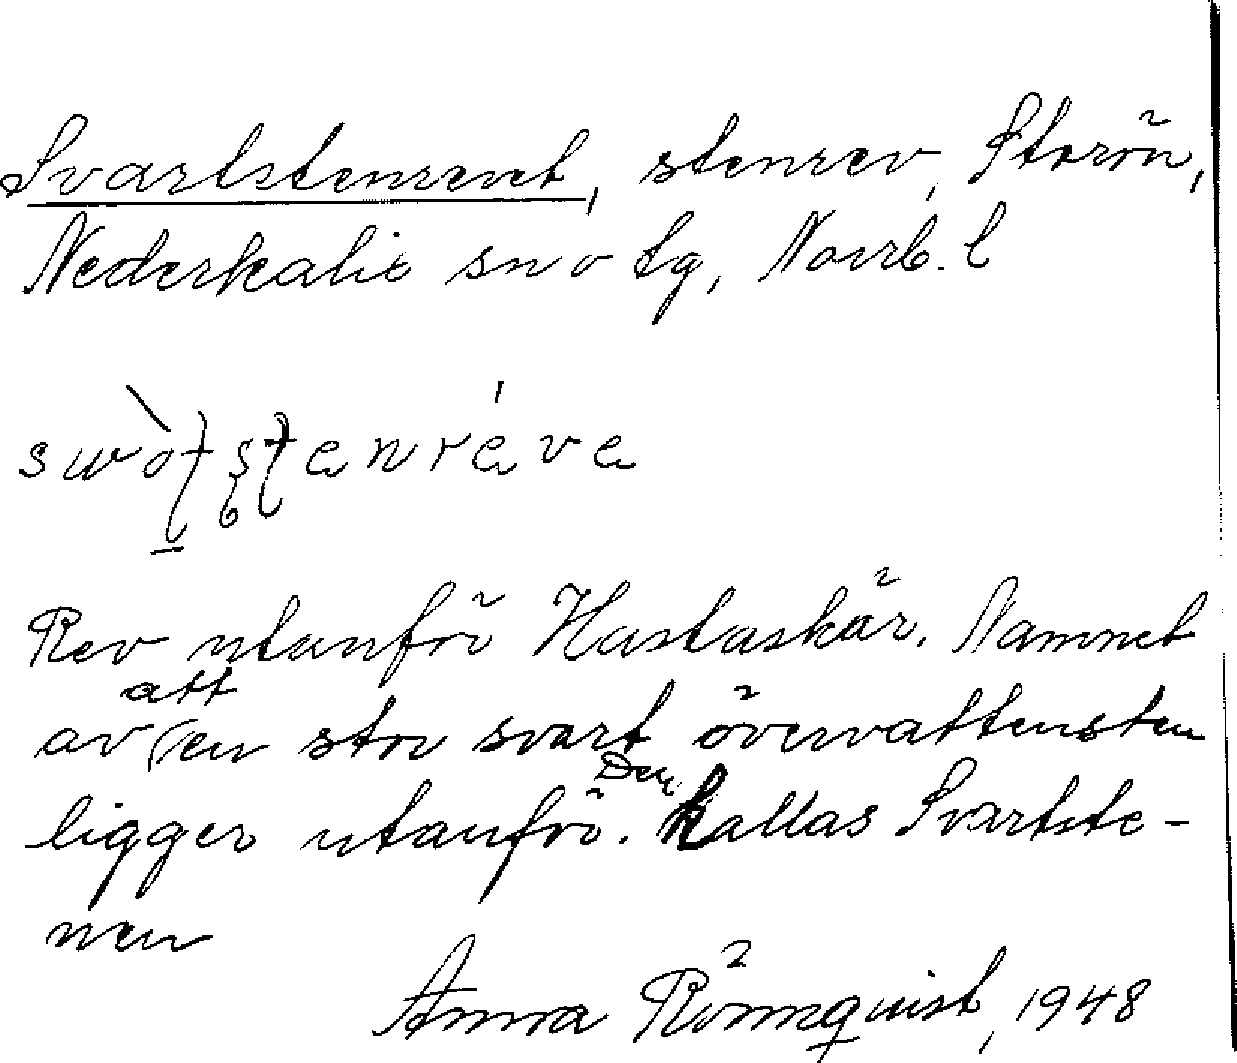 Svartstenrevet, stenrev, Storön,
Nederkalix sn o tg, Norrb. l
Rev utanför Hastaskär. Namnet
av att en stor svart övervattensten
ligger utanför. Den kallas Svartste-
nen
Anna Rönnquist, 1948